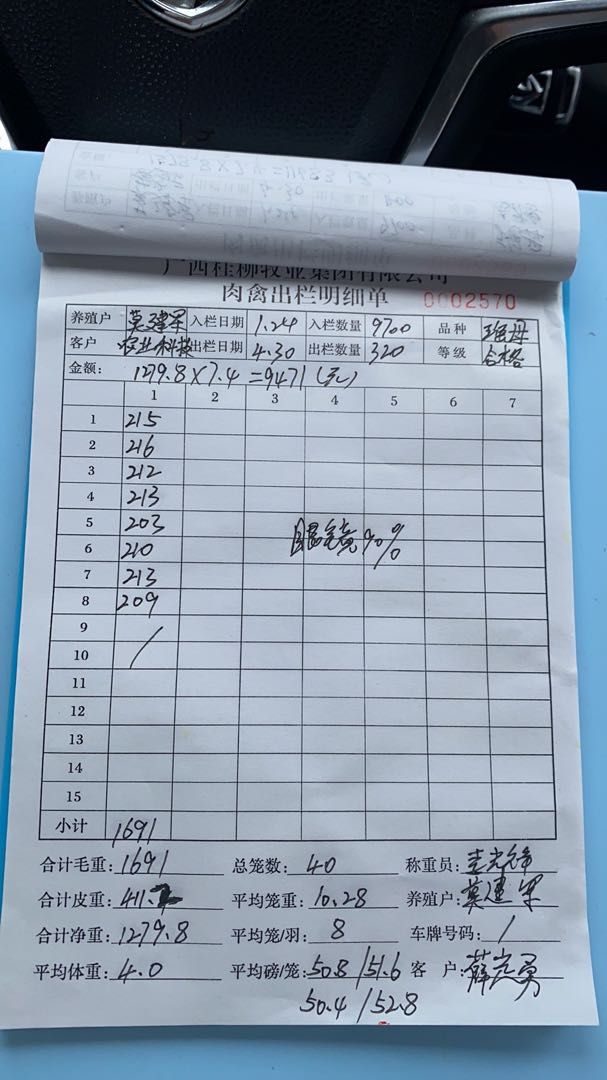 1279.8×7.4=1148
广西桂柳牧业集团有限公司
肉禽出栏明细单 0002570
养殖户 莫建军 入栏日期 1.24 入栏数量 9700 品种
客户 农业科技 出栏日期 4.30 出栏数量 320 等级 合格
金额: 1279.8×7.4=9471(元)
1 2 3 4 5 6 7
1 215
2 216
3 212
4 213
5 203
6 210
眼镜90%
7 213
8 209
9
10 /
11
12
13
14
15
小计 1691
合计毛重: 1691 总笼数: 40 称重员:
合计皮重: 411. 平均笼重: 10.28 养殖户: 莫建军
合计净重: 1279.8 平均笼/羽: 8 车牌号码: /
平均体重: 4.0 平均磅/笼: 50.8/51.6 客 户:
50.4/52.8